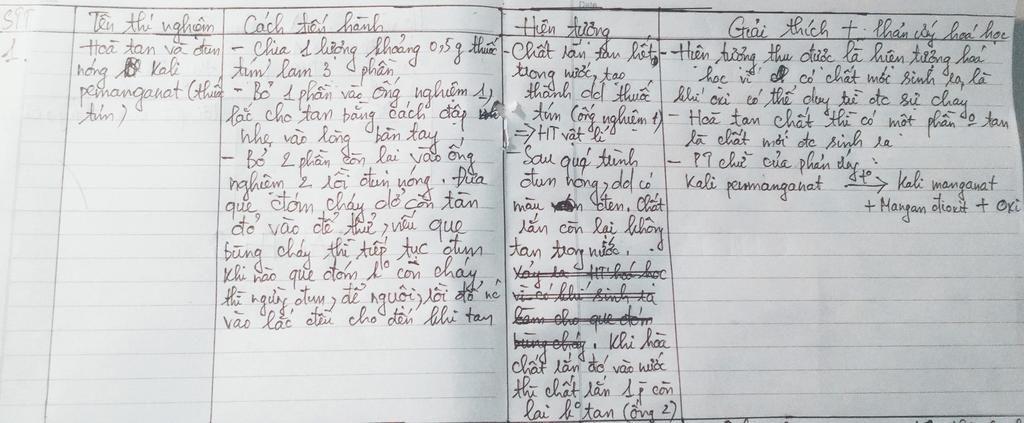 STT
1.
Tên thí nghiệm
Hoà tan và đun
nóng Kali
pemanganat (thuốc
tím)
Cách tiến hành
- Chia 1 lượng khoảng 0,5g thuốc
tím làm 3 phần
- Bỏ 1 phần vào ống nghiệm 1,
lắc cho tan bằng cách đập
nhẹ vào lòng bàn tay
- Bỏ 2 phần còn lại vào ống
nghiệm 2 rồi đun nóng. Đưa
que đóm cháy dở còn tàn
đỏ vào để thử, nếu que
bùng cháy thì tiếp tục đun
Khi nào que đóm ko còn cháy
thì ngừng đun, để nguội, rồi đổ nc
vào lắc đều cho đến khi tan
Hiện tượng
- Chất rắn tan hết
trong nước, tạo
thành dd thuốc
tím (ống nghiệm 1)
=> HT vật lí
- Sau quá trình
đun nóng, dd có
màu đen. Chất
rắn còn lại không
tan trong nước.
Xảy ra HT hoá học
vì có khí sinh ra
làm cho que đóm
bùng cháy. Khi hoà
chất rắn đó vào nước
thì chất rắn 1 p còn
lại ko tan (ống 2)
Giải thích + phản ứng hoá học
- Hiện tượng thu được là hiện tượng hoá
học vì có chất mới sinh ra, là
khí oxi có thể duy trì đc sự cháy
- Hoà tan chất thì có một phần ko tan
là chất mới đc sinh ra
- PT chữ của phản ứng:
Kali pemanganat to→ Kali manganat
+ Mangan đioxit + Oxi